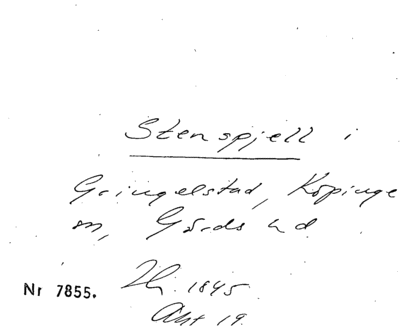 Stenspjell i
Gringelstad, Köpinge
sn, Gärds hd
Nr 7855. Th. 1845.
Akt 19.